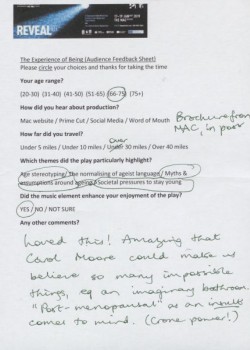 REVEAL
The Experience of Being (Audience Feedback Sheet)
Please circle your choices and thanks for taking the time
Your age range?
(20-30) (31-40) (41-50) (51-65) (66-75) (75+)
How did you hear about production?
Mac website / Prime Cut / Social Media / Word of Mouth
Brochure from
MAC, in post
How far did you travel?
Over
Under 5 miles / Under 10 miles / Under 30 miles / Over 40 miles
Which themes did the play particularly highlight?
Age stereotyping / the normalising of ageist language / Myths &
assumptions around ageing / Societal pressures to stay young
Did the music element enhance your enjoyment of the play?
YES / NO / NOT SURE
Any other comments?
Loved this! Amazing that
Carol Moore could make us
believe so many impossible
things, eg an imaginary bathroom.
"Post-menopausal" as an insult
comes to mind. (Crone power!)